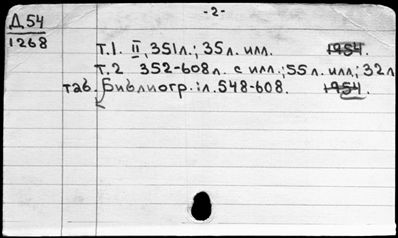 -2-
Д.54
1268
т.1. II, 351л.; 35л. илл. 1954.
т.2 352-608л. с илл.; 55 л. илл; 32л
таб. Библиогр.: л. 548-608. 1954.